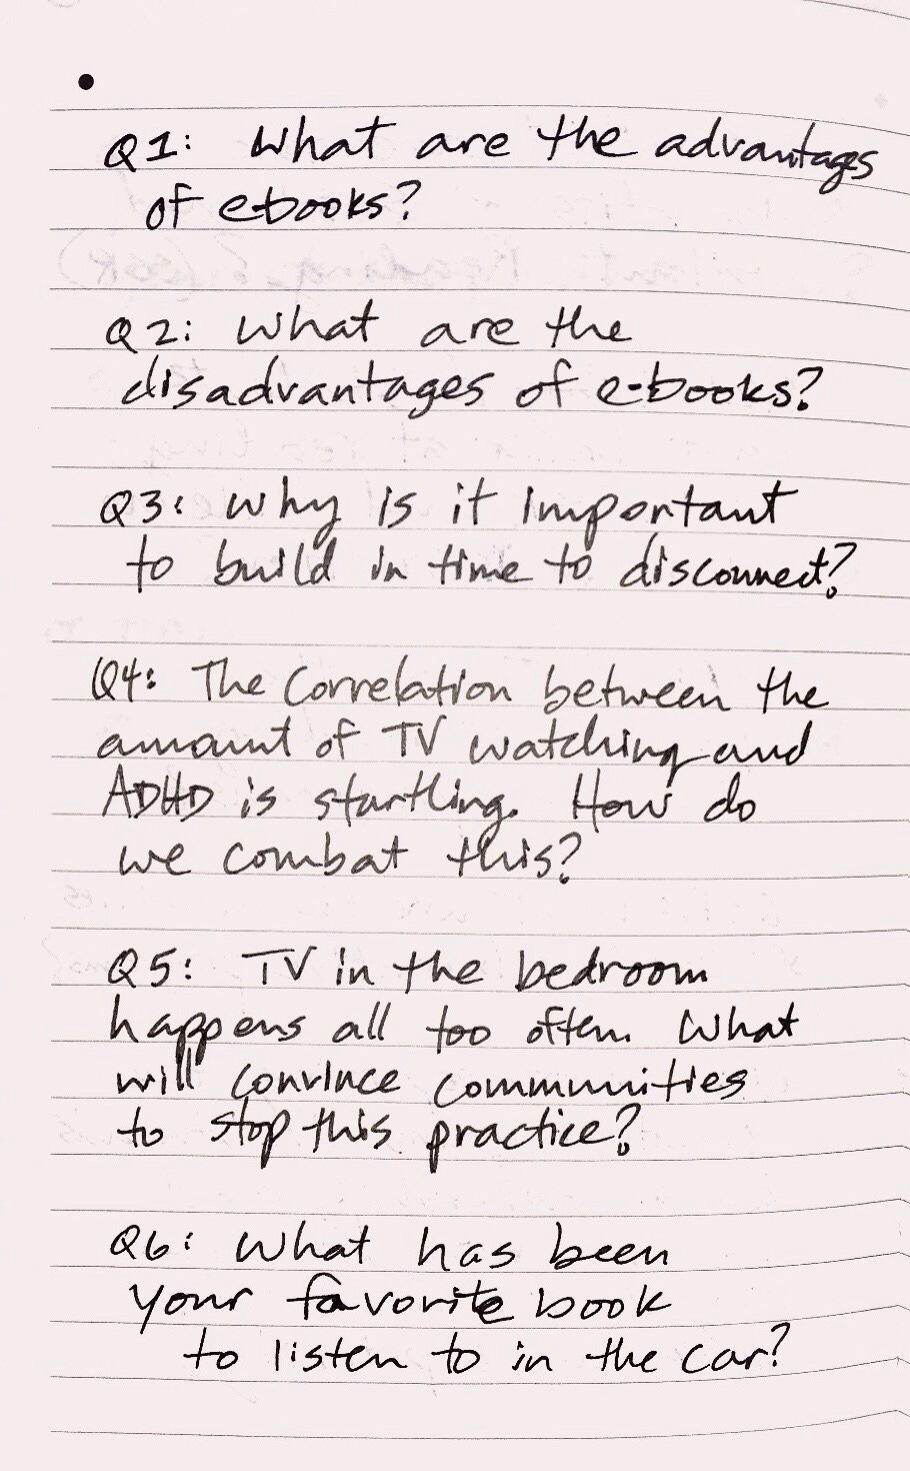 Q1: What are the advantages
of ebooks?
Q2: What are the
disadvantages of e-books?
Q3: Why is it important
to build in time to disconnect?
Q4: The Correlation between the
amount of TV watching and
ADHD is startling. How do
we combat this?
Q5: TV in the bedroom
happens all too often. What
will convince communities
to stop this practice?
Q6: What has been
your favorite book
to listen to in the car?